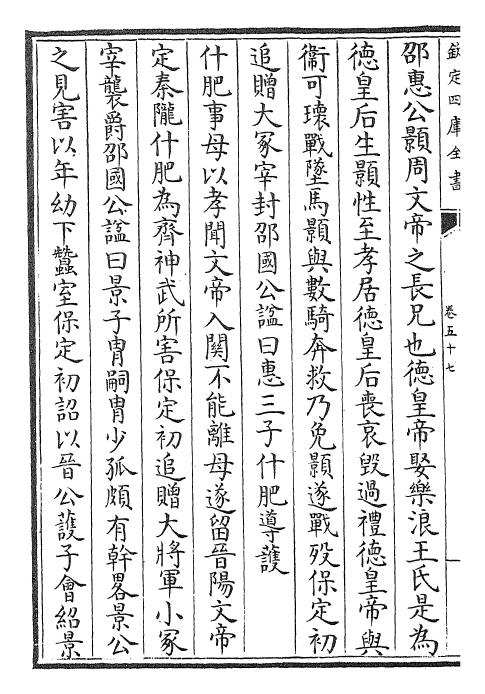 欽定四庫全書
卷五十七
邵惠公顥周文帝之長兄也德皇帝娶樂浪王氏是為
德皇后生顥性至孝居德皇后喪哀毀過禮德皇帝與
衛可瓌戰墜馬顥與數騎奔救乃免顥遂戰歿保定初
追贈大冢宰封邵國公諡曰惠三子什肥導護
什肥事母以孝聞文帝入關不能離母遂留晉陽文帝
定秦隴什肥為齊神武所害保定初追贈大將軍小冢
宰襲爵邵國公諡曰景子胄嗣胄少孤頗有幹畧景公
之見害以年幼下蠶室保定初詔以晉公護子會紹景